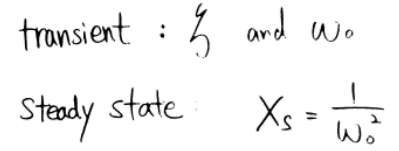 transient : ζ and ω₀
Steady state : Xₛ = 1/ω₀²